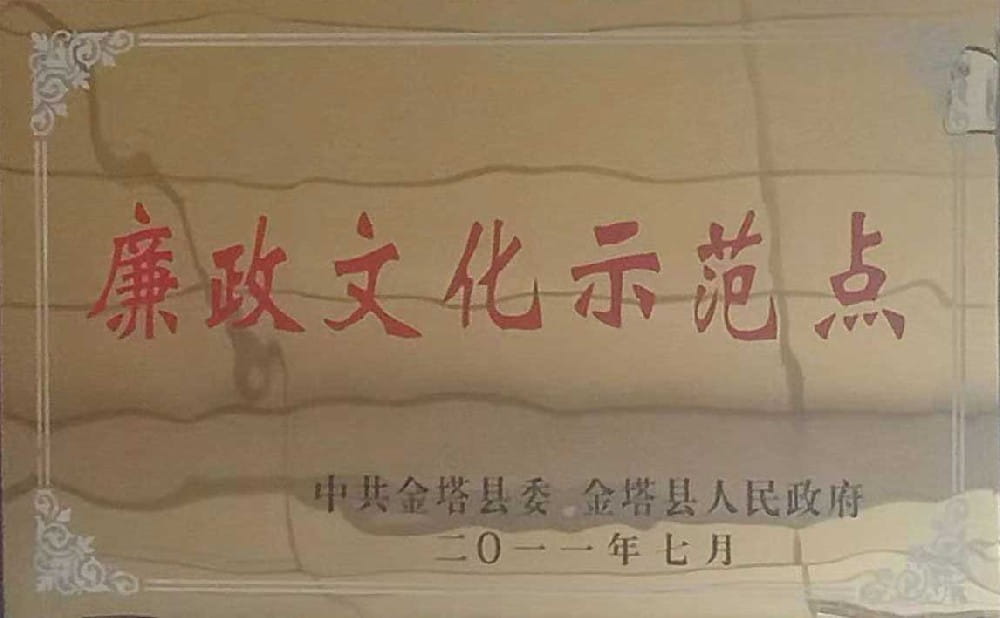 廉政文化示范点
中共金塔县委 金塔县人民政府
二〇一一年七月